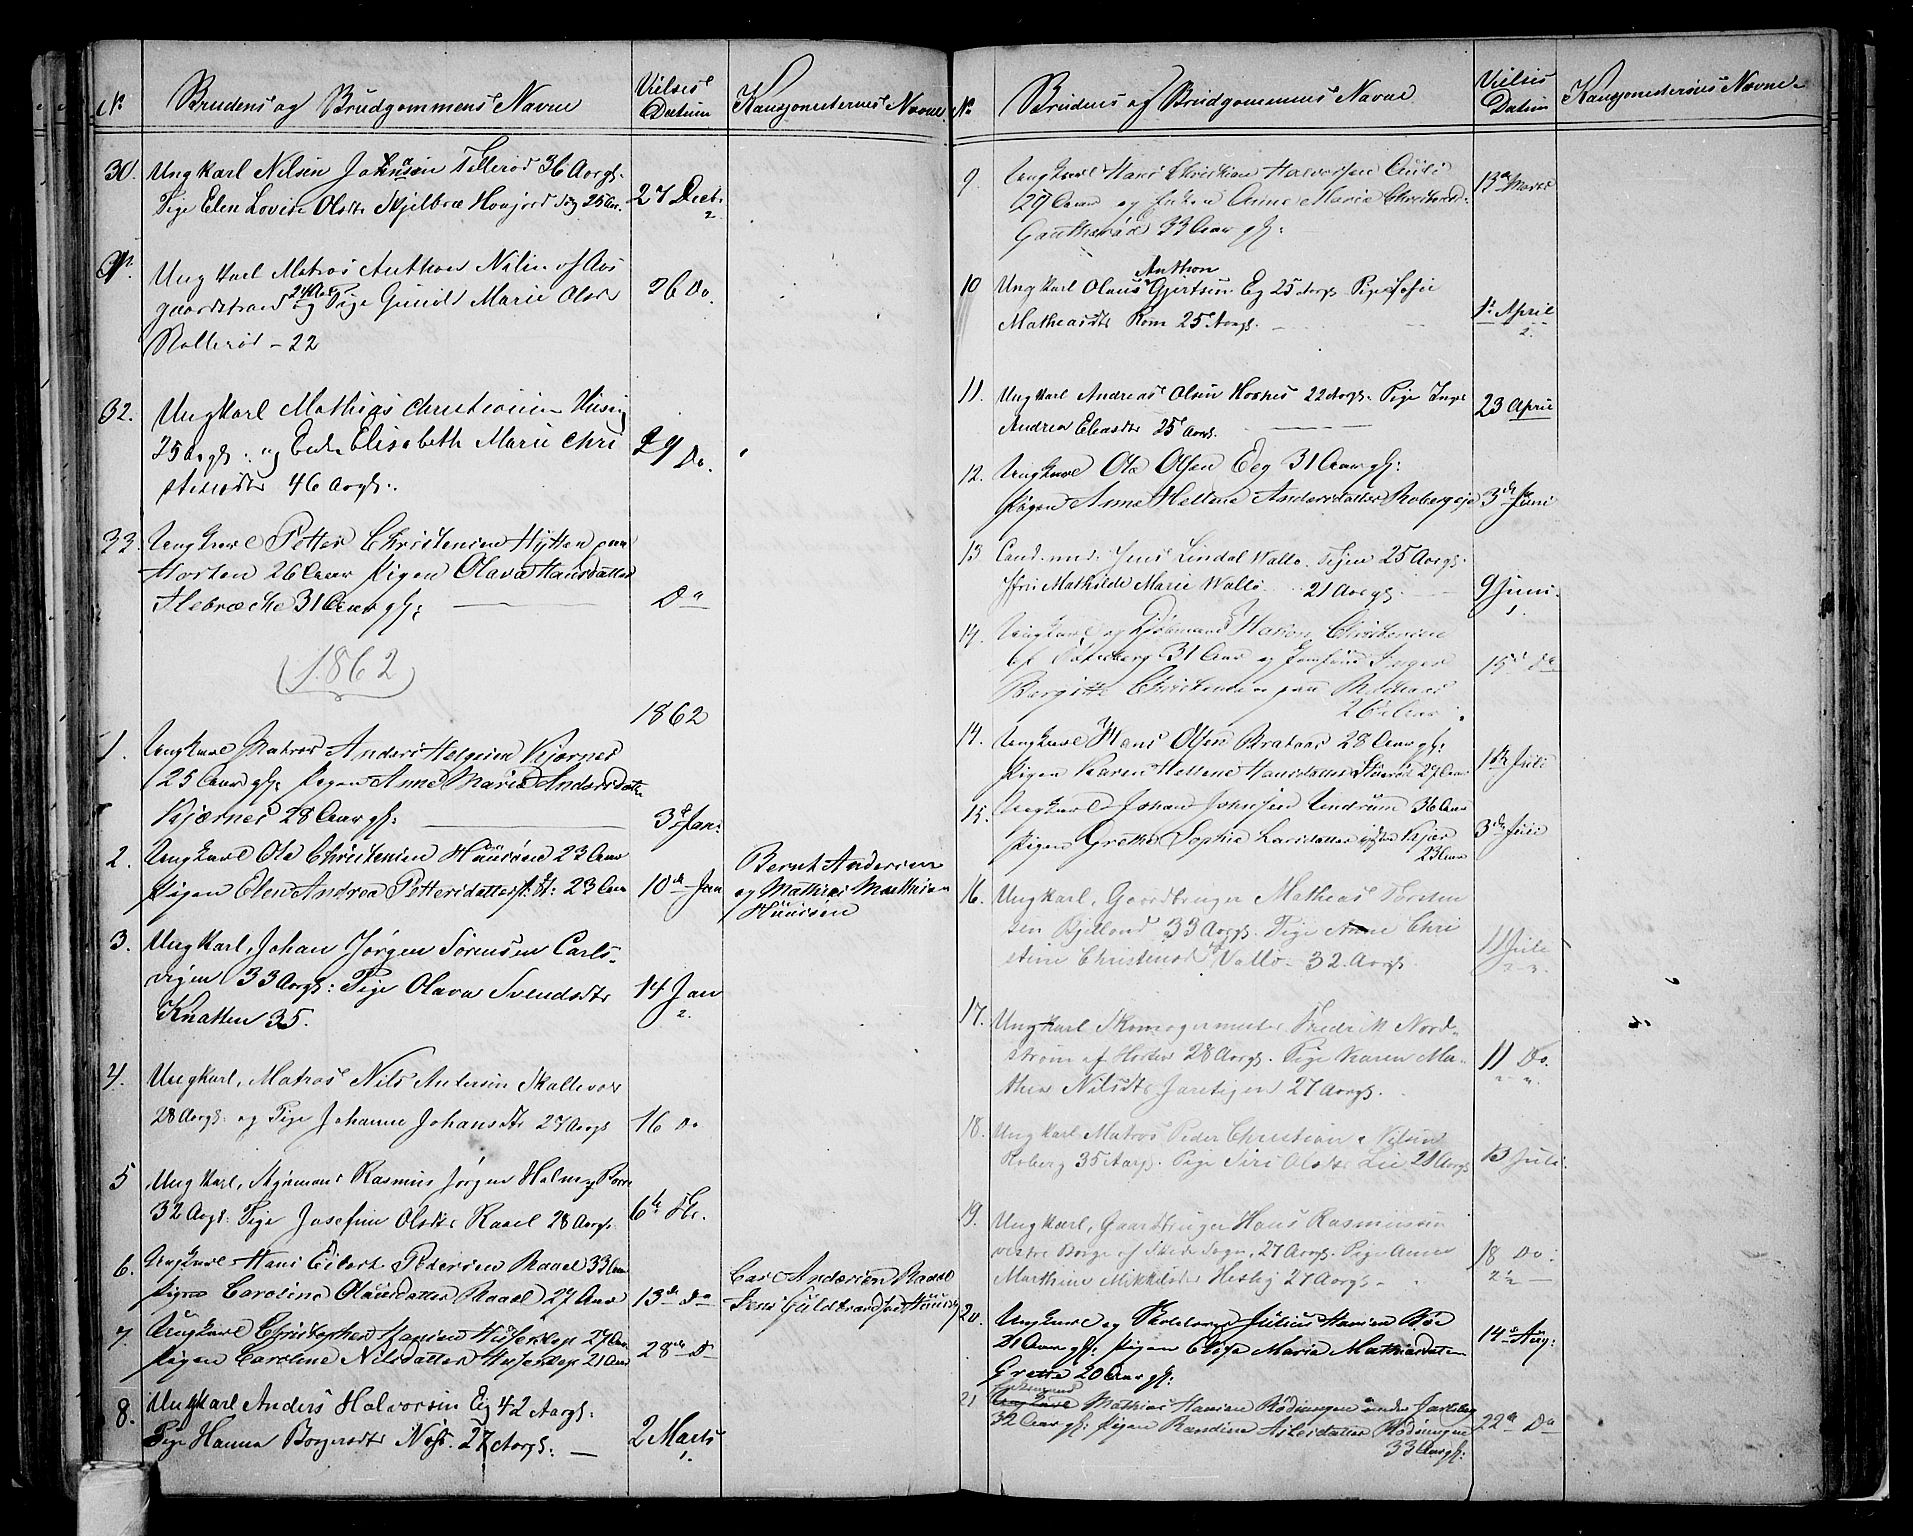 No
Brudens og Brudgommens Navne
Vielses
Datum
Kausjonisternes Navne
30. Ungkarl Nilsen Johnsøn Tellerød 36 Aargl.
Pige Elen Lovise Olsdtr 25
27 Decbr
Ungkarl Matros Anthon Nilsen af Aas
gaardstrand og Pige Gunild Marie Olsdr
Rollerød - 22
26 Do.
32. Ungkarl Mathias Christiansen
25 Aargl: og Enke Elisabeth Marie Chri
stensdtr 46 Aargl:
29 Do.
33. Ungkarl Petter Christensen Hytten paa
Horten 26 Aar Pigen Olava Hansdatter
31 Aar gl:
Do
1862
1862
1. Ungkarl Matros Anders Helgesen Kjærnes
25 Aar gl: Pigen Anne Maria Andersdatter
Kjærnes 28 Aar gl:
3d Jan:
2. Ungkarl Ole Christensen 23 Aar
Pigen Elen Andrea Pettersdatter 23 Aar
10de Jan
Bernt Andersen
og Mathias Mathisen
3. Ungkarl, Johan Jørgen Sørensen Carls-
vigen 33 Aargl: Pige Olava Svendsdtr
Knatten 35.
14 Jan
2.
4. Ungkarl, Matros Nils Andersen Skallevold
28 Aargl: og Pige Johanne Johansdtr 27 Aargl
16 Do
5 Ungkarl, Styrmand Rasmus Jørgen Holm
32 Aargl: Pige Josefine Olsdtr Raael 28 Aargl.
6te
6. Ungkarl Hans Eilert Pedersen Raael 33 Aar
Pigen Carolina Olausdatter Raael 27 Aar
13de Do
Carl Andersen Raael
7. Ungkarl Christopher Hansen 27 Aar
Pigen Caroline Nilsdatter 21 Aar
28de Do
8. Ungkarl Anders Halvorsen Eig 42 Aargl:
Pige Hanna 27 Aargl:
2 Marts
1.
No
Brudens og Brudgommens Navne
Vielses
Datum
Kausjonisternes Navne
9. Ungkarl Hans Christian Halvorsen Auli
27 Aar og Enken Anne Marie Christensd.
33 Aar gl:
13de Marts
Anthon
10 Ungkarl Olaus Gjertsen Eg 25 Aargl. Pige Sofie
Matheasdtr Rom 25 Aargl.
1. April
2.
11. Ungkarl Andreas Olsen Hosnes 22 Aargl. Pige Inge
Andrea Eliasdtr 25 Aargl.
23 April
12. Ungkarl Ole Olsen Eeg 31 Aar gl:
Pigen Anne Helline Andersdatter Roberg
3de Juni
13 Cand. med: Jens Lindal Wallø. Tejen 25 Aargl.
Mathilde Marie Wallø 21 Aargl.
9 Juni.
1.
14. Ungkarl og Hakon Christensen
31 Aar og Jomfru Inger
Bergitte Christensen paa
26 Aar
15de Do
14. Ungkarl Hans Olsen Brataas 28 Aar gl:
Pigen Karen Hellene Hansdatter 27 Aar
Juli
15. Ungkarl Johan Johnsen Undrum 36 Aar
Pigen Grethe Sophie Larsdatter Kjær
23 Aar
3de Juli
16. Ungkarl, Gaardbruger Mathias Torsten
sen Bjelland 33 Aargl. Pige Anne Chri
stine Christensd Vallø - 32. Aargl.
11 Juli
17. Ungkarl Skomagermester Fredrik Nord-
strøm af Horten 28 Aargl. Pige Karen Ma-
thea Nilsdtr Jaretigen 27 Aargl.
11 Do.
18. Ungkarl Matros Peder Christian Nilsen
Roberg 35 Aargl. Pige Siri Olsdtr Lie 28 Aargl
13 Juli.
19. Ungkarl, Gaardbruger Hans Rasmussen
vestre Borge af Skede Sogn, 27 Aargl. Pige Anne
Marthine Mikkelsdtr Hesby 27 Aargl.
18 Do.
20. Ungkarl og Julius Hansen Bøe
21 Aar gl: Pigen Elise Maria Mathiasdatter
Grette 20 Aar gl:
14de Aug:
21 Enkemand
Ungkarl Mathias Hansen Rødningen under Jarlsberg
32 Aar gl: Pigen Aslesdatter Rødningen
33 Aar gl:
22de Do